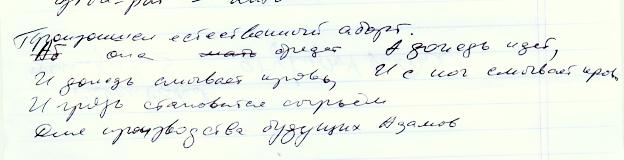 Произошёл естественный аборт.
Аб она мать бредет А дождь идет,
И дождь смывает кровь, И с ног смывает кровь
И грязь становится сырьём
Для производства будущих Адамов